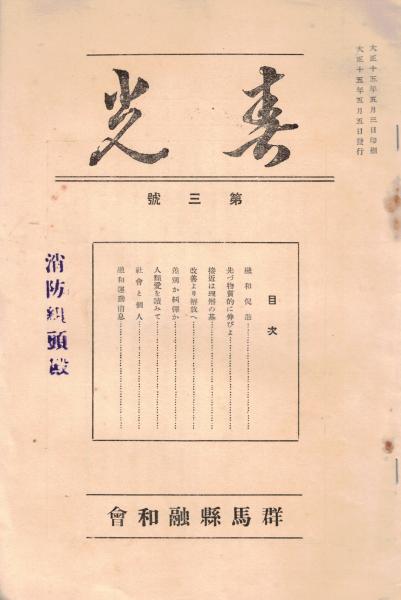 大正十五年五月三日印刷
大正十五年五月五日發行
春光
第三號
目次
融和促進
先づ物質的に伸びよ
接近は理解の基
改善より解放へ
差別か糾彈か
人類愛を讀みて
社會と個人
融和運動消息
消防組頭殿
群馬縣融和會